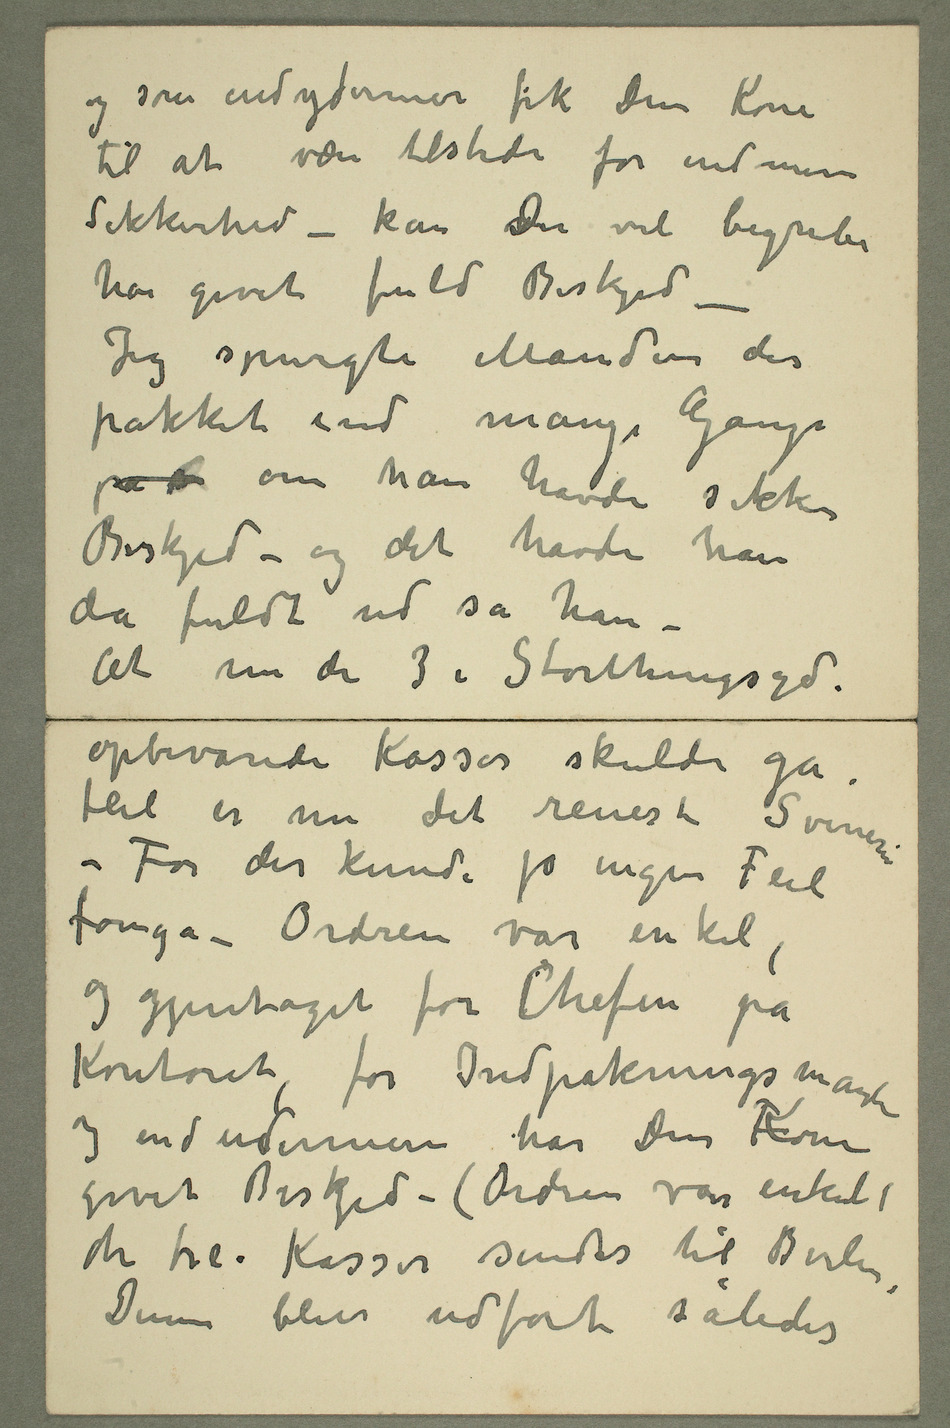 og som endydermer fik Din Kone
til at være tilstede for end mere
Sikkerhed – kan Du vel begribe
har givet fuld Beskjed –
Jeg spurgte Manden der
pakket ind mange Gange
om han havde sikker
Beskjed – og det havde han
da fuldt ud sa han –
At nu de 3 i Storthingsgd.
opbevarede Kasser skulde ga
feil er nu det reneste Svineri
– For der kunde jo ingen Feil
foregå – Ordren var enkel,
og gjentaget for Chefen på
Kontoret, for Indpakningsmanden
og end udermere har Din Kone
givet Beskjed – (Ordren var enkel)
de tre Kasser sendes til Berlin.
Denne blev udført således